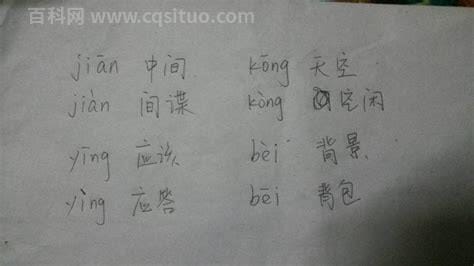 百科网 www.cqsituo.com
jiān 中间 kōng 天空
jiàn 间谍 kòng 空闲
yīng 应该 bèi 背景
yìng 应答 bēi 背包